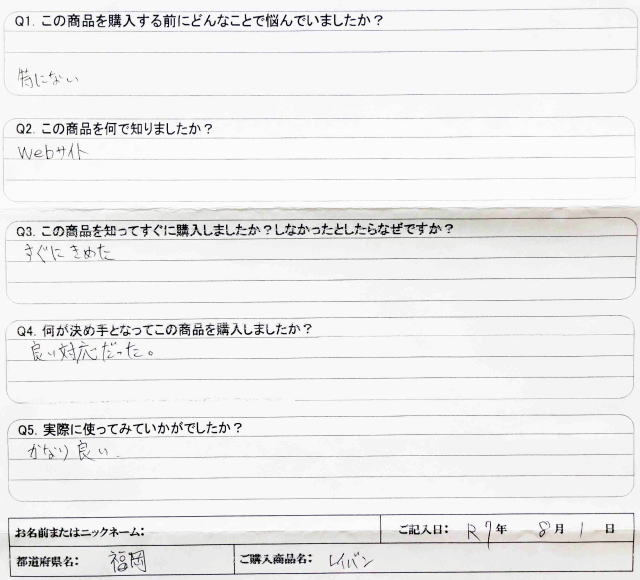 Q1. この商品を購入する前にどんなことで悩んでいましたか？
特にない
Q2. この商品を何で知りましたか？
Webサイト
Q3. この商品を知ってすぐに購入しましたか？しなかったとしたらなぜですか？
すぐにきめた
Q4. 何が決め手となってこの商品を購入しましたか？
良い対応だった。
Q5. 実際に使ってみていかがでしたか？
かなり良い.
お名前またはニックネーム： ご記入日： R7年 8月 1日
都道府県名： 福岡 ご購入商品名： レイバン